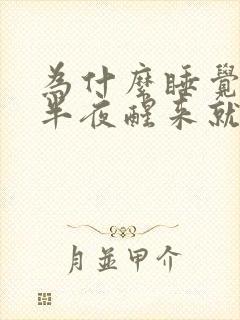 為什麼睡覺
半夜醒來就
月並甲介